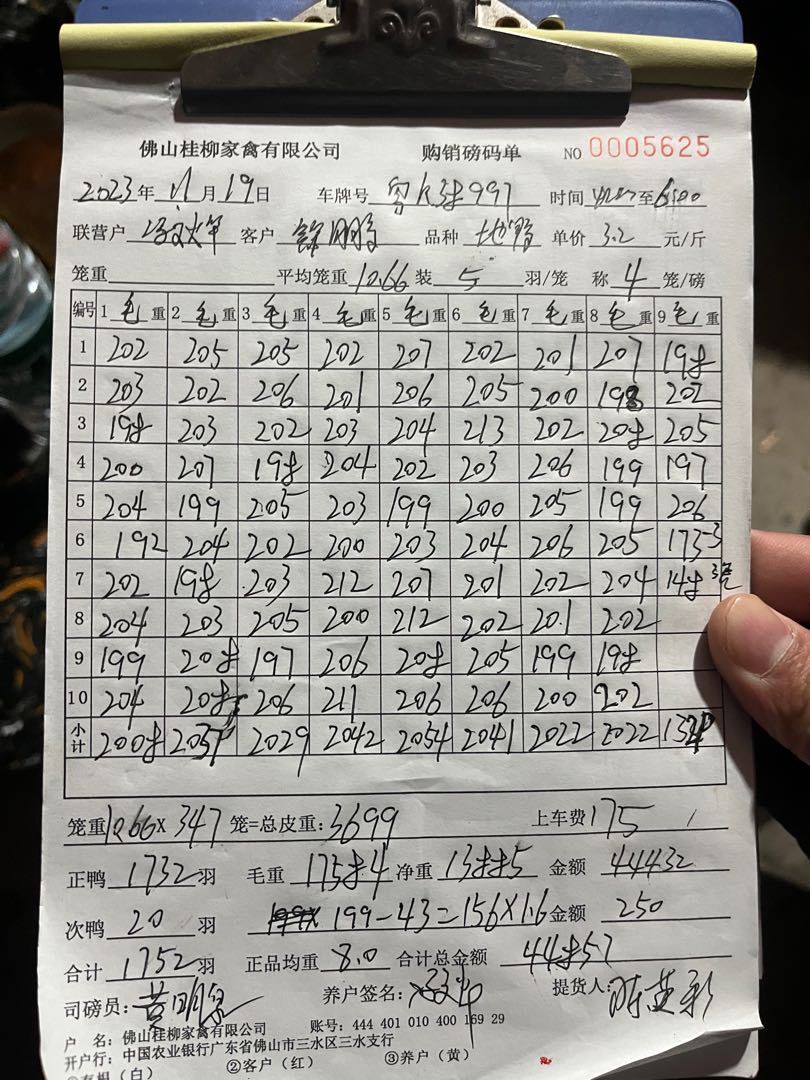 佛山桂柳家禽有限公司 购销磅码单 NO 0005625
2023年 11月 19日 车牌号 997 时间 至
联营户 客户 品种 单价 3.2 元/斤
笼重 平均笼重 10.66 装 5 羽/笼 称 4 笼/磅
编号 1 毛重 2 毛重 3 毛重 4 毛重 5 毛重 6 毛重 7 毛重 8 毛重 9 毛重
1 202 205 205 202 207 202 201 207 198
2 203 202 206 201 206 205 200 198 202
3 198 203 202 203 204 213 202 208 205
4 200 207 198 204 202 203 206 199 197
5 204 199 205 203 199 200 205 199 206
6 192 204 202 200 203 204 206 205 175 3
7 202 198 203 212 207 201 202 204 148 3笼
8 204 203 205 200 212 202 201 202
9 199 208 197 206 208 205 199 198
10 204 208 206 211 206 206 200 202
小计 2008 2037 2029 2042 2054 2041 2022 2022
笼重 10.66 X 347 笼=总皮重: 3699 上车费 175
正鸭 1732 羽 毛重 17584 净重 13885 金额 44432
次鸭 20 羽 199-43=156X1.6 金额 250
合计 1752 羽 正品均重 8.0 合计总金额 44857
司磅员: 黄明泉 养户签名: 提货人:
户 名: 佛山桂柳家禽有限公司 账号: 444 401 010 400 169 29
开户行: 中国农业银行广东省佛山市三水区三水支行
①存根(白) ②客户(红) ③养户(黄)